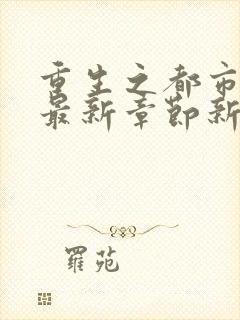 重生之都市
最新章節新
羅苑